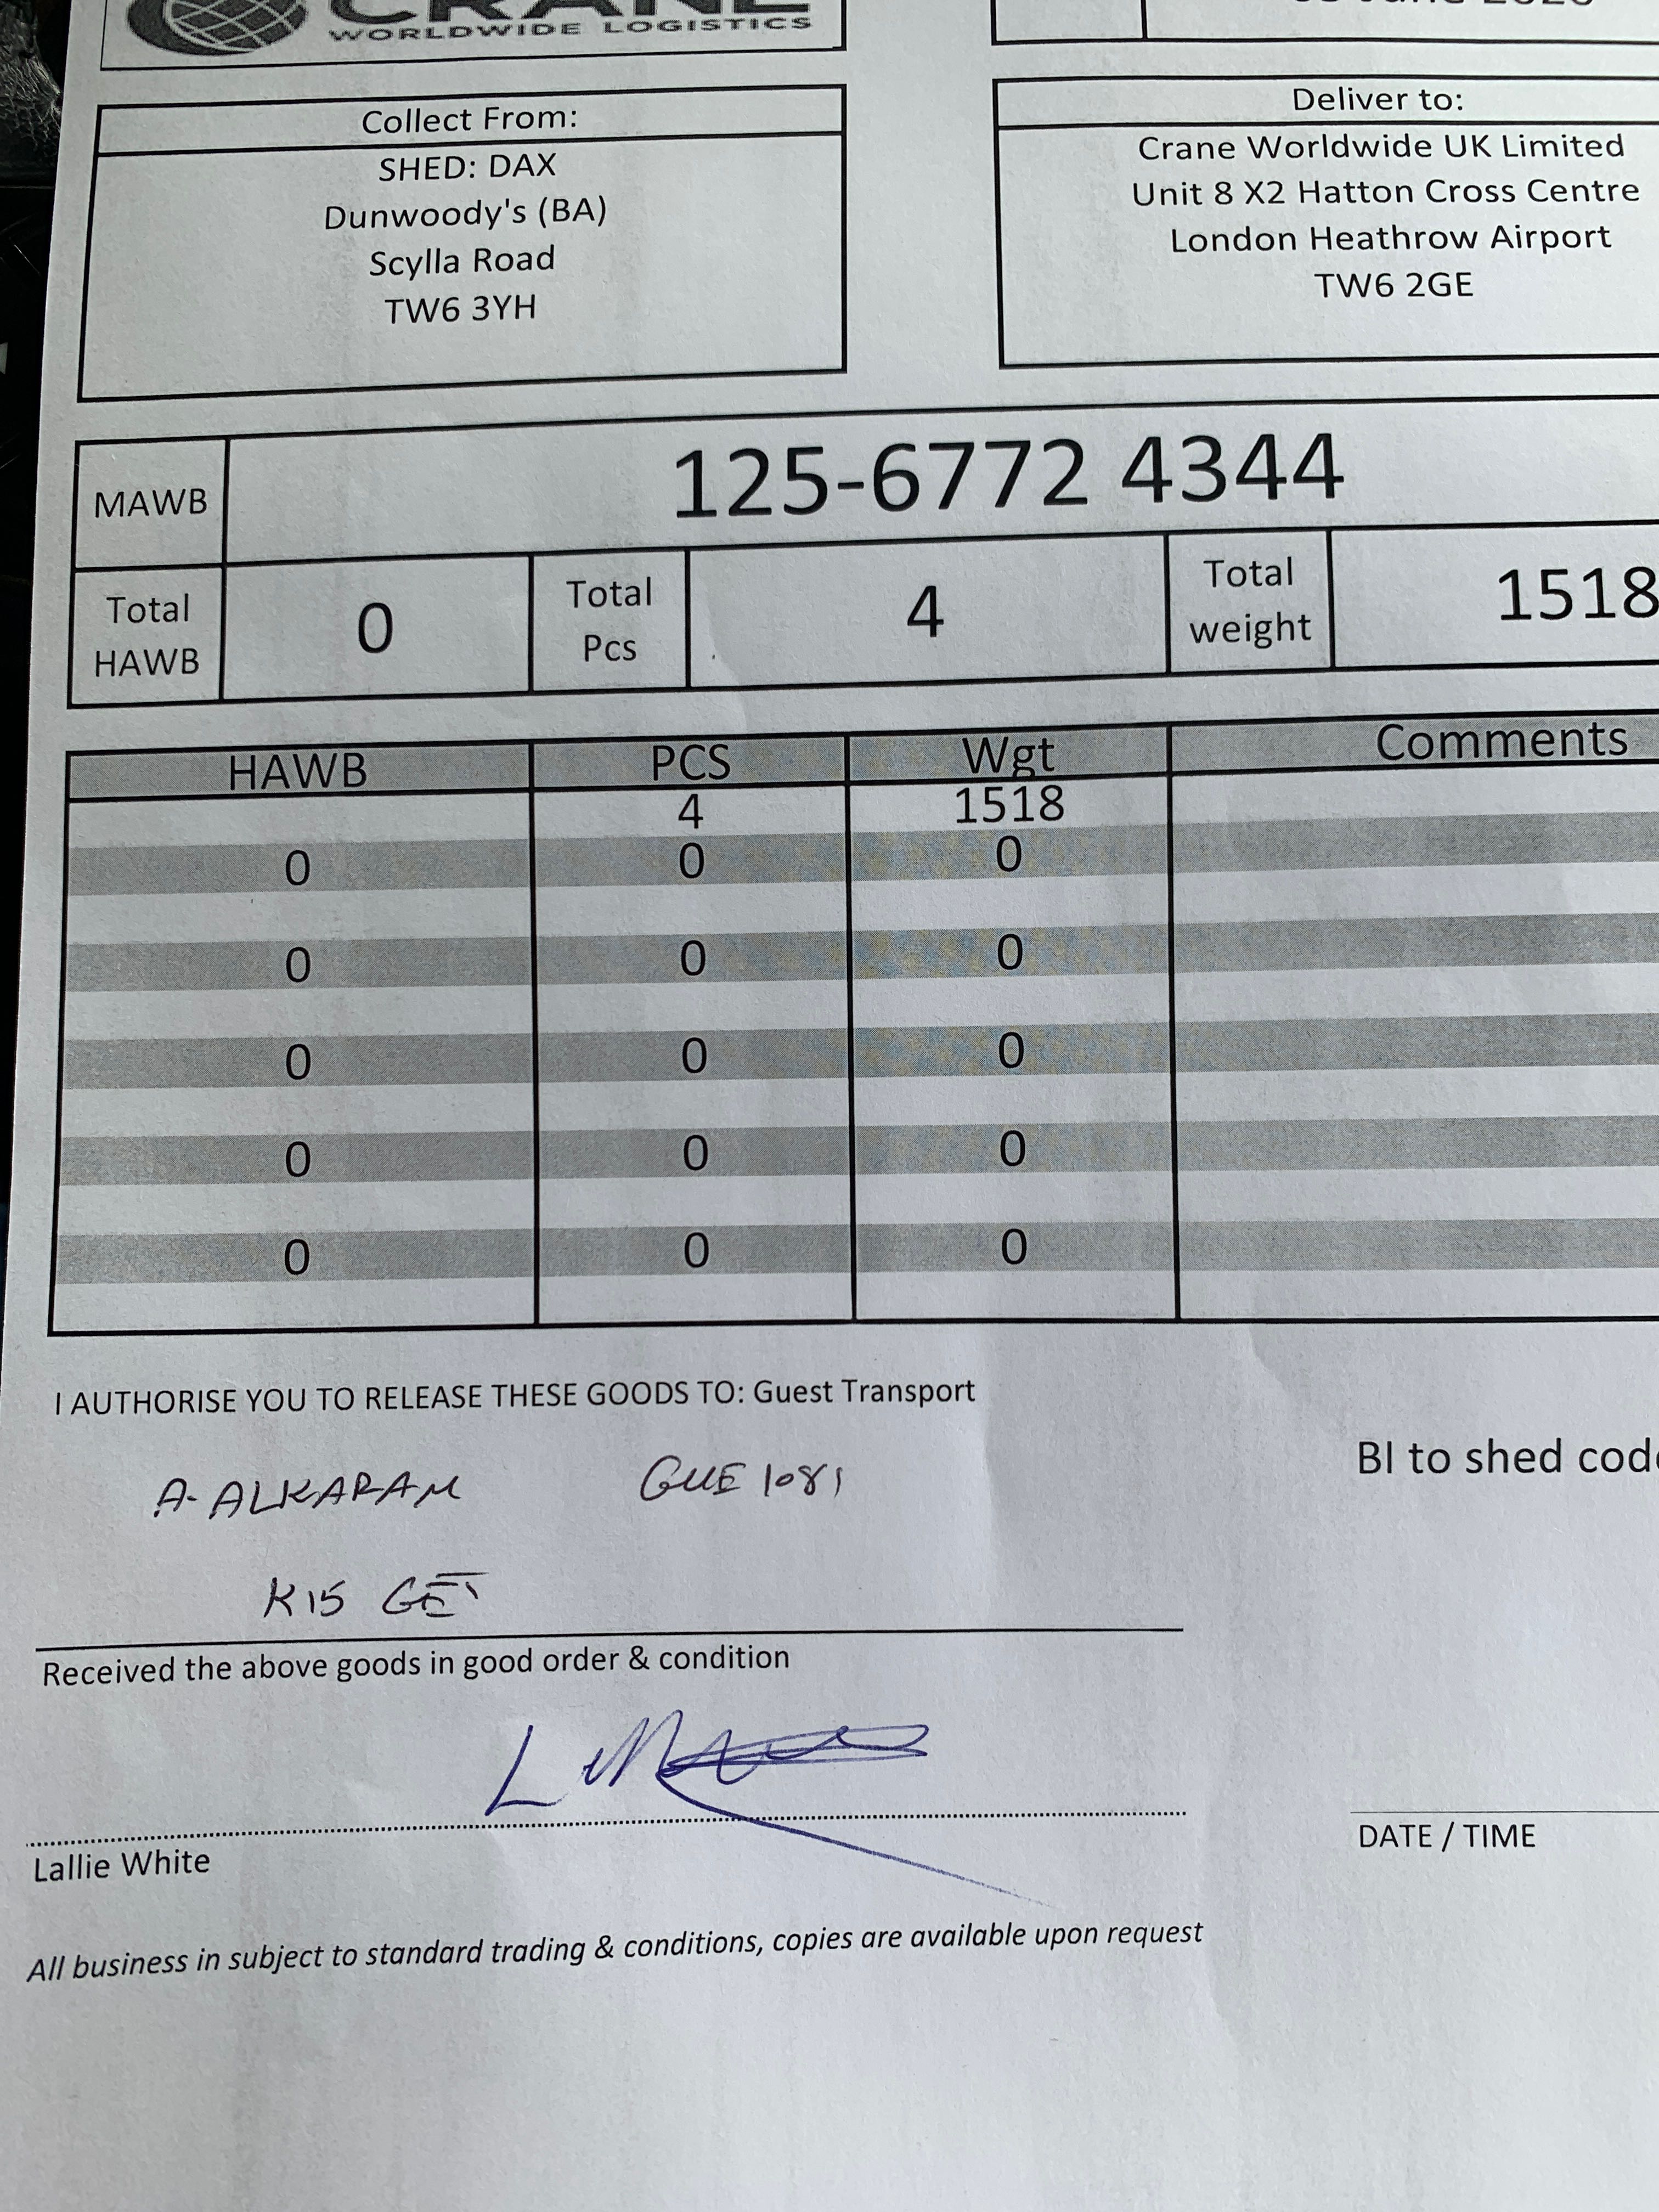 CRANE
WORLDWIDE LOGISTICS
Collect From:
SHED: DAX
Dunwoody's (BA)
Scylla Road
TW6 3YH
Deliver to:
Crane Worldwide UK Limited
Unit 8 X2 Hatton Cross Centre
London Heathrow Airport
TW6 2GE
MAWB 125-6772 4344
Total HAWB 0 Total Pcs 4 Total weight 1518
HAWB PCS Wgt Comments
4 1518
0 0 0
0 0 0
0 0 0
0 0 0
0 0 0
I AUTHORISE YOU TO RELEASE THESE GOODS TO: Guest Transport
BI to shed
A- ALKARAM GUE 1081
K15 GET
Received the above goods in good order & condition
Lallie White
DATE / TIME
All business in subject to standard trading & conditions, copies are available upon request